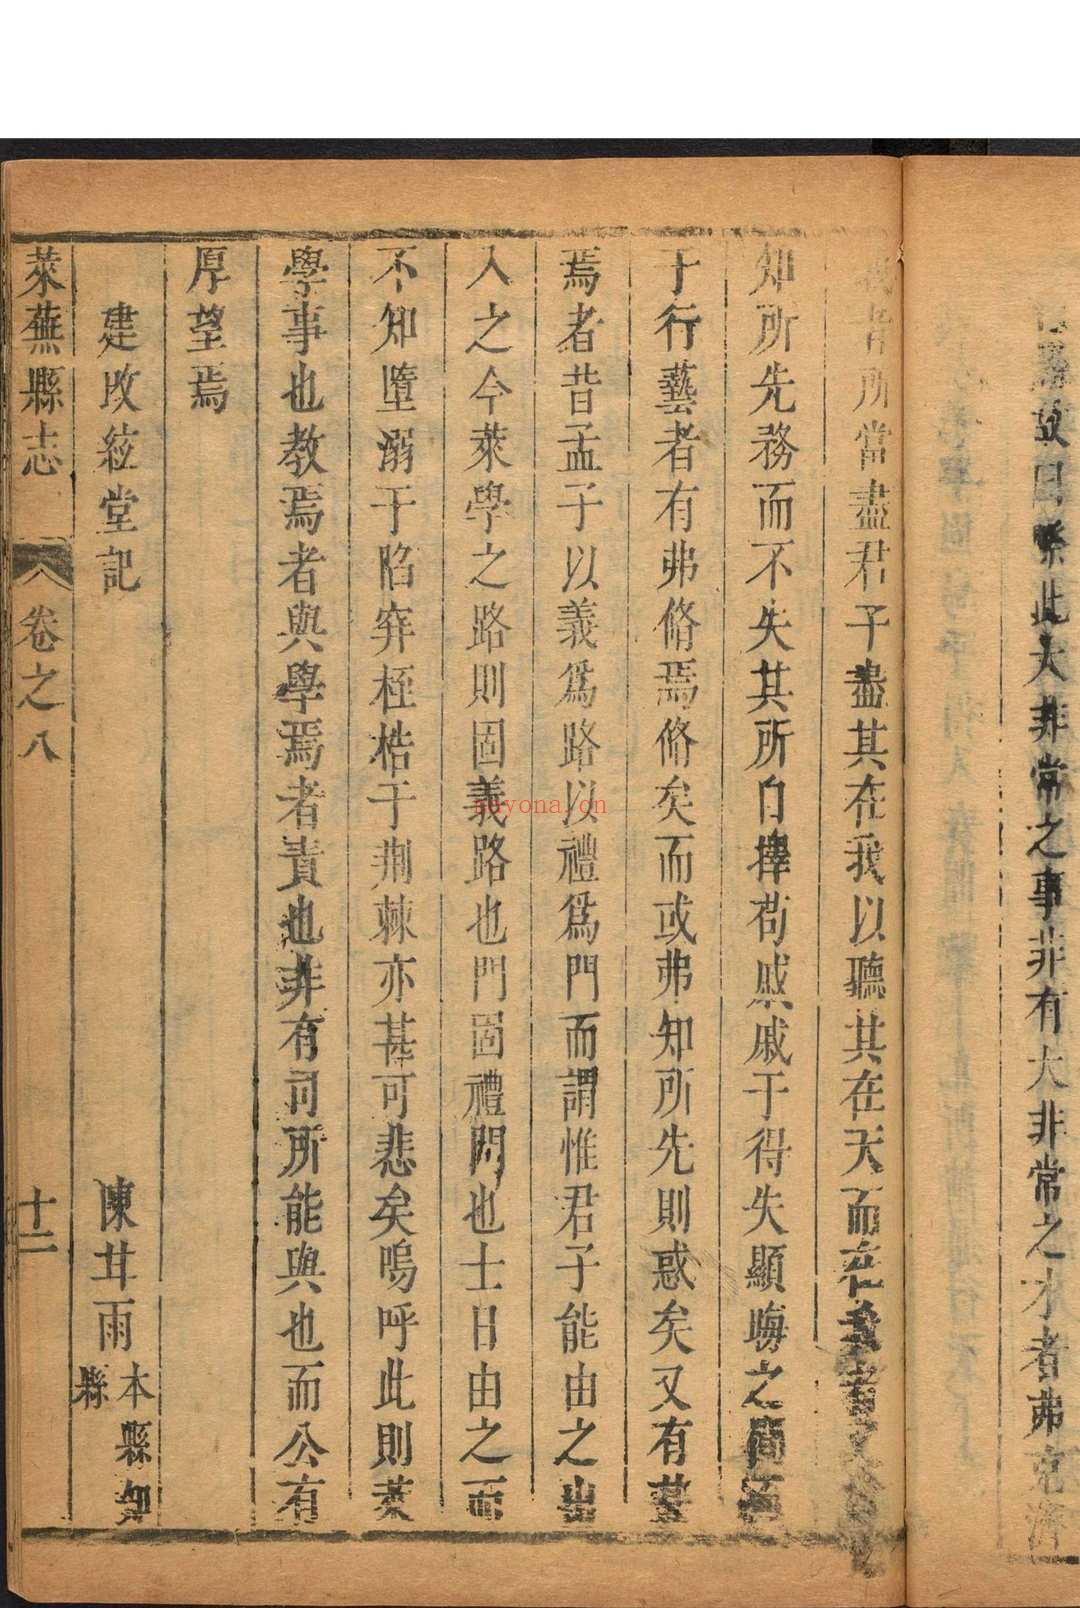 故曰 此大非常之事非有大非常之才者弗克濟
皆所當盡君子盡其在我以聽其在天而在我者又
知所先務而不失其所自擇苟戚戚于得失顯晦之間而
于行藝者有弗脩焉脩矣而或弗知所先則惑矣又有甚
焉者昔孟子以義爲路以禮爲門而謂惟君子能由之出
入之今萊學之路則固義路也門固禮門也士日由之而
不知墮溺于陷穽桎梏于荆棘亦甚可悲矣嗚呼此則萊
學事也教焉者與學焉者責也非有司所能與也而公有
厚望焉
建改絃堂記 陳甘雨 本縣知縣
萊蕪縣志 卷之八 十二
nayona.cn